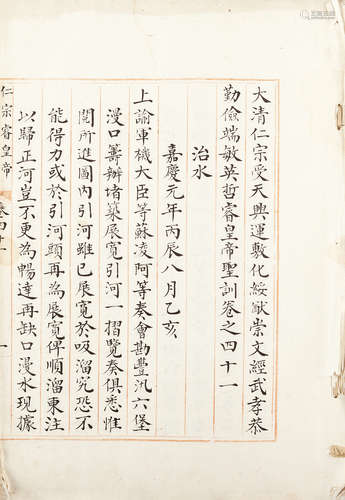 大清仁宗受天興運敷化綏猷崇文經武孝恭
勤儉端敏英哲睿皇帝聖訓卷之四十一
治水
嘉慶元年丙辰八月乙亥
上諭軍機大臣等蘇凌阿等奏會勘豐汛六堡
漫口籌辦堵築展寬引河一摺覽奏俱悉惟
閱所進圖內引河雖已展寬於吸溜究恐不
能得力或於引河頭再為展寬俾順溜東注
以歸正河豈不更為暢達再缺口漫水現據
仁宗睿皇帝 卷四十一 一